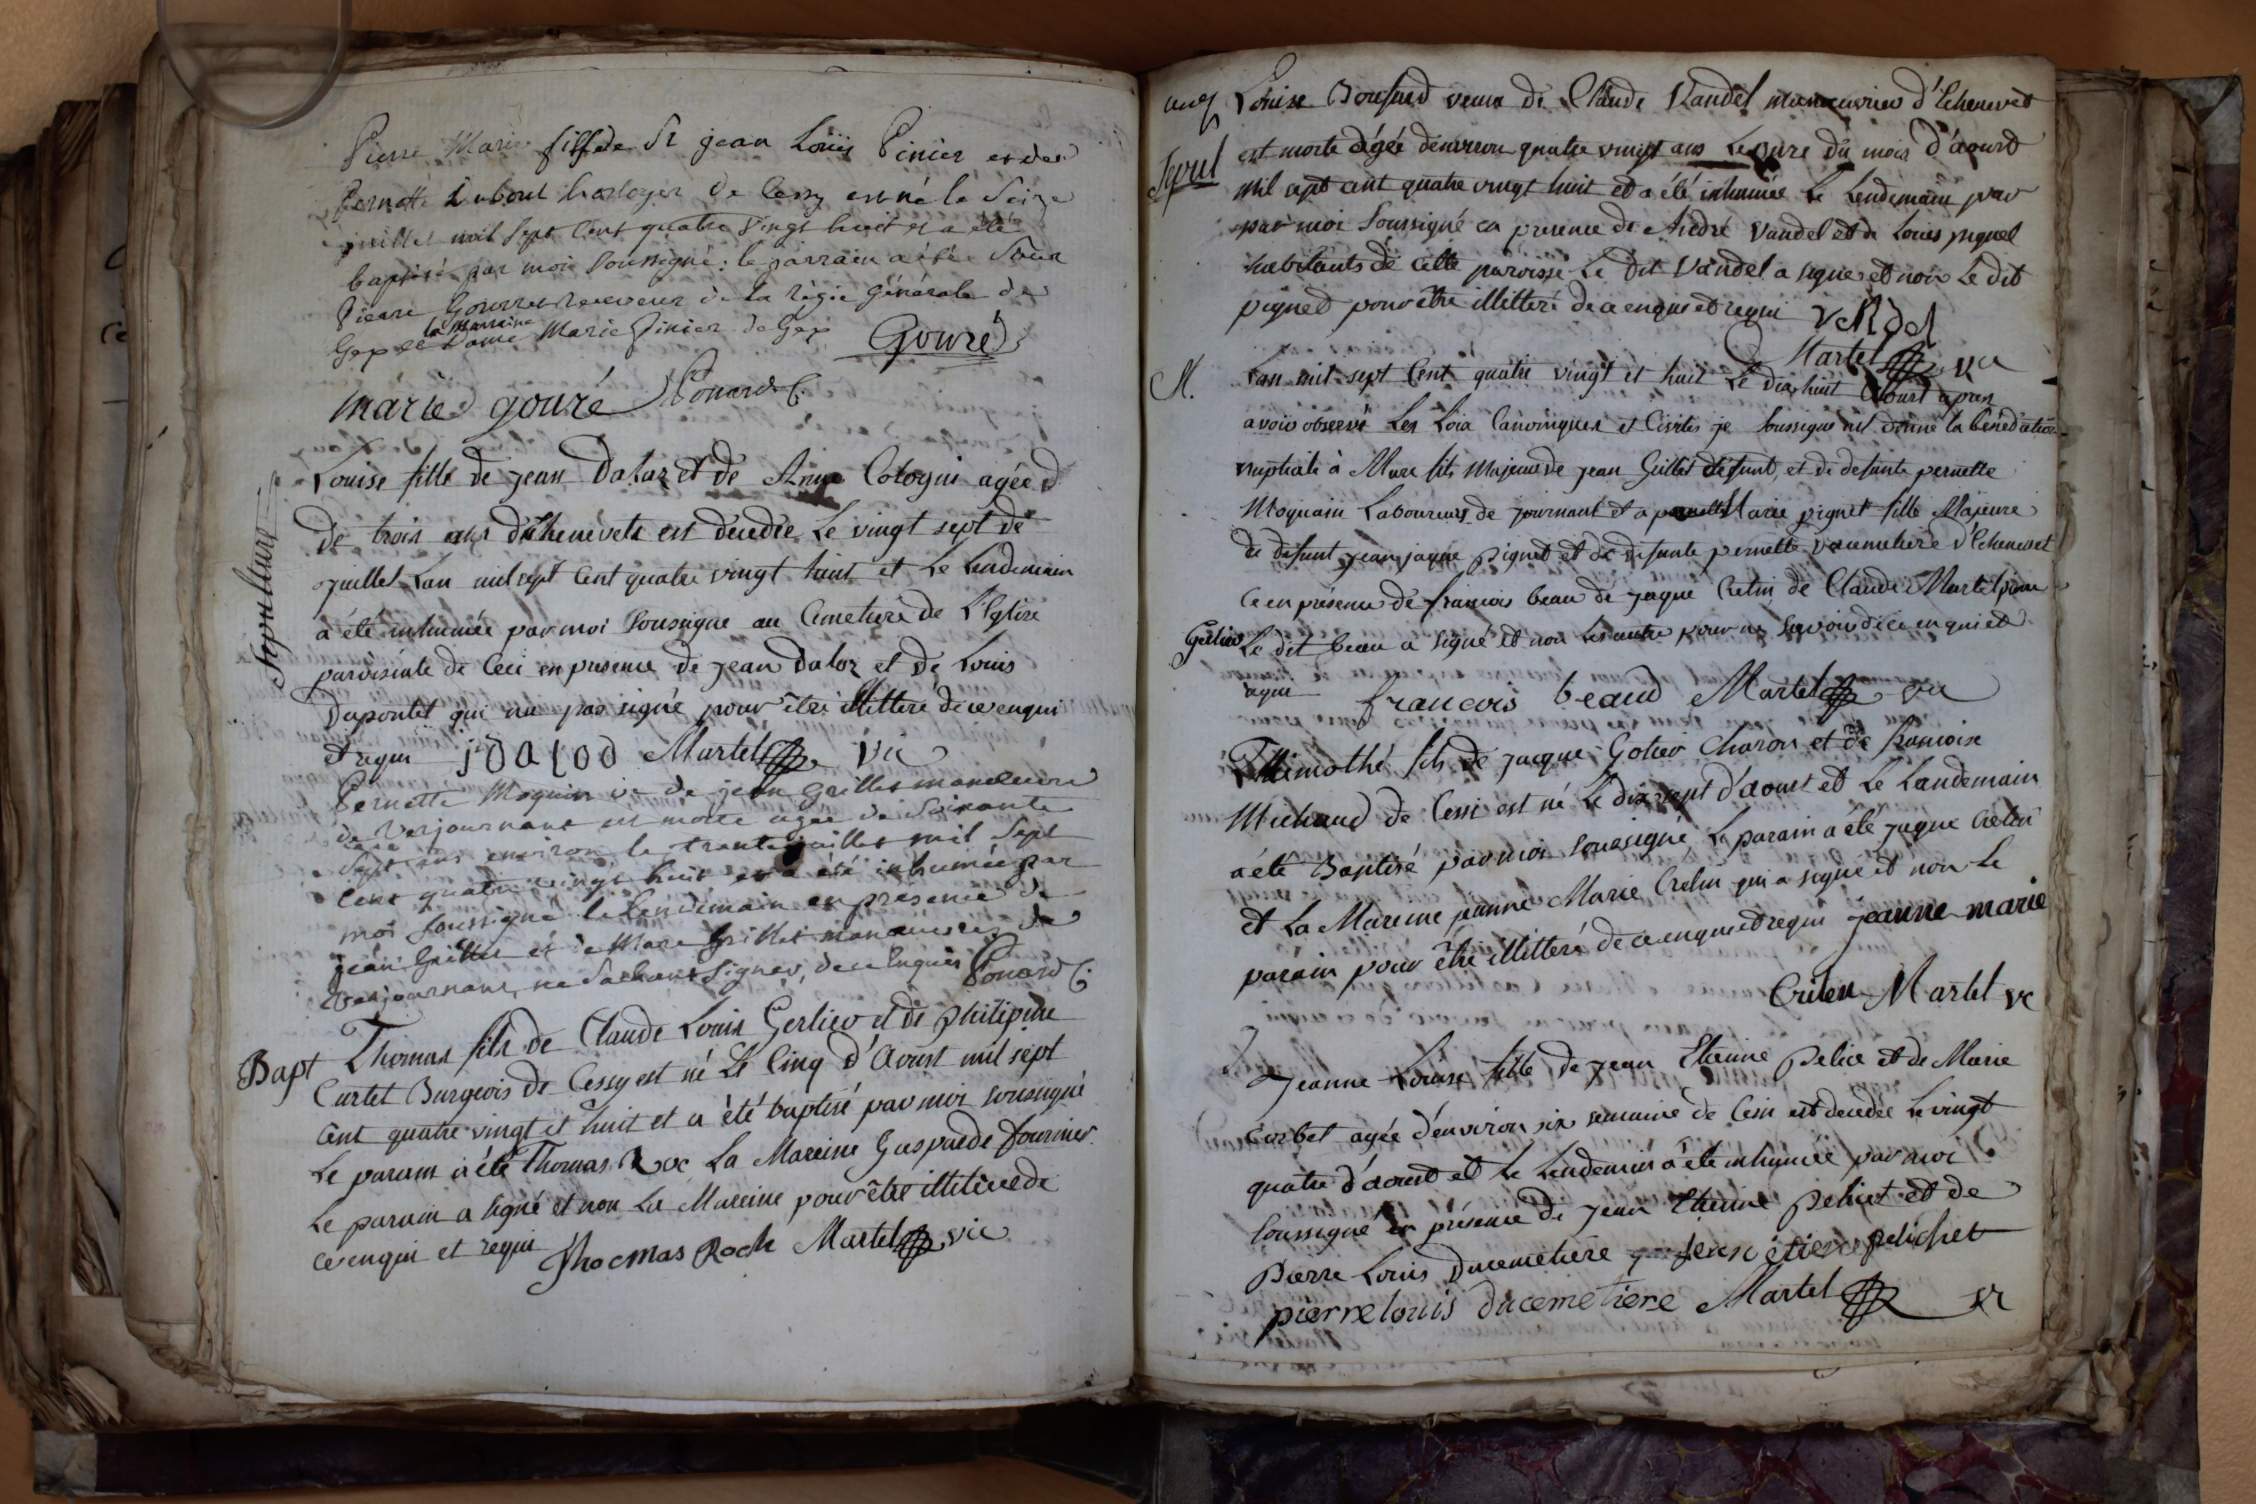 Pierre Marie fils de Sr jean Loüis Pinier et de
Pernette Dubout horloger de Cessy est né le Seize
juillet mil Sept Cent quatre Vingt huit et a été
baptisé par moi Soussigné: le parrain a été Sieur
Pierre Gouré receveur de la régie générale de
Gex et la marraine Dame Marie Pinier de Gex Gouré
marie gouré Ponard C.
Sepulture
Louise fille de jean Daloz et de Anne Cologni agée d
De trois ans d'Echenevets est decedée Le vingt sept de
juillet Lan mil sept Cent quatre vingt huit et Le Lendemain
a été inhumée par moi Soussigne au Cimetiere de L'Eglise
paroissiale de Ceci en presence de jean Daloz et de Louis
Dupontet qui na pas signé pour être illitteré de ce enqui
et requi jDalod Martel vic
Pernette Moquin ve de jean Grillet manoeuvre
de Verjournant est morte agée de Soixante
Sept ans environ le trente juillet mil Sept
Cent quatre vingt huit et a été inhumée par
moi Soussigné le Lendemain en présence de
jean Grillet et de Marc Grillet manoeuvres de
Verjournant, ne Sachant Signer, de ce Enquis Ponard C.
Bapt Thomas fils de Claude Louis Gerlier et de philipine
Curtet Burgeois de Cessy est né Le Cinq d'Aoust mil sept
Cent quatre vingt et huit et a été baptisé par moi soussigné
Le parain a été Thomas Roc La Mareine Gasparde fournier
Le parain a signé et non La Mareine pour être illiterée de
ce enqui et requi Thocmas Rock Martel vic
Louise Bousard veuve de Claude Vandel manoeuvrier d'Echenevet
Sepul est morte agée denviron quatre vingt ans Le onze du mois d'aoust
mil sept cent quatre vingt huit et a été inhumée Le Lendemain par
par moi Soussigné en presence de André Vandel et de Louis pignet
habitants de cette paroisse Le Dit Vandel a signé et non Le dit
pignet pour être illitteré de ce enquis et requi vandel
Martel vic
M. Lan mil sept Cent quatre vingt et huit Le dix huit Aoust apres
avoir observé Les Loix Canoniques et Civiles je Soussigne ait donné la bénédiction
nuptiale à Marc fils Majeur de jean Grillet défunt, et de defunte pernette
Moquain Laboureur de journant et a Marie pignet fille Majeure
de defunt jean jaque pignet et de defunte pernette Ducimetiere d'Echenevet
Ce en présence de francois beau de jaque Cretin de Claude Martel
Le dit beau a signé et non Les autre pour ne Savoir de ce enqui et
francois beaud Martel vic
Thimothé fils de jacque Gotier Charon et de francoise
Michaud de Cessi est né Le dix sept d'aoust et Le Landemain
a été Baptisé par moi soussigné Le parain a été jaque Cretin
et La Mareine jeanne Marie Cretin qui a signé et non Le
parain pour être illitteré de ce enqui et requi jeanne marie
Criten Martel vc
Jeanne Louise fille de jean Etienne pelice et de Marie
Corbet agée d'environ six semaine de Cesi est decedée Le vingt
quatre d'aoust et Le Lendemain a été inhumée par moi
Soussigné en présence de jean Etienne pelicet et de
Pierre Louis Ducemetiere jean étiene pelichet
pierre louis ducemetiere Martel vi